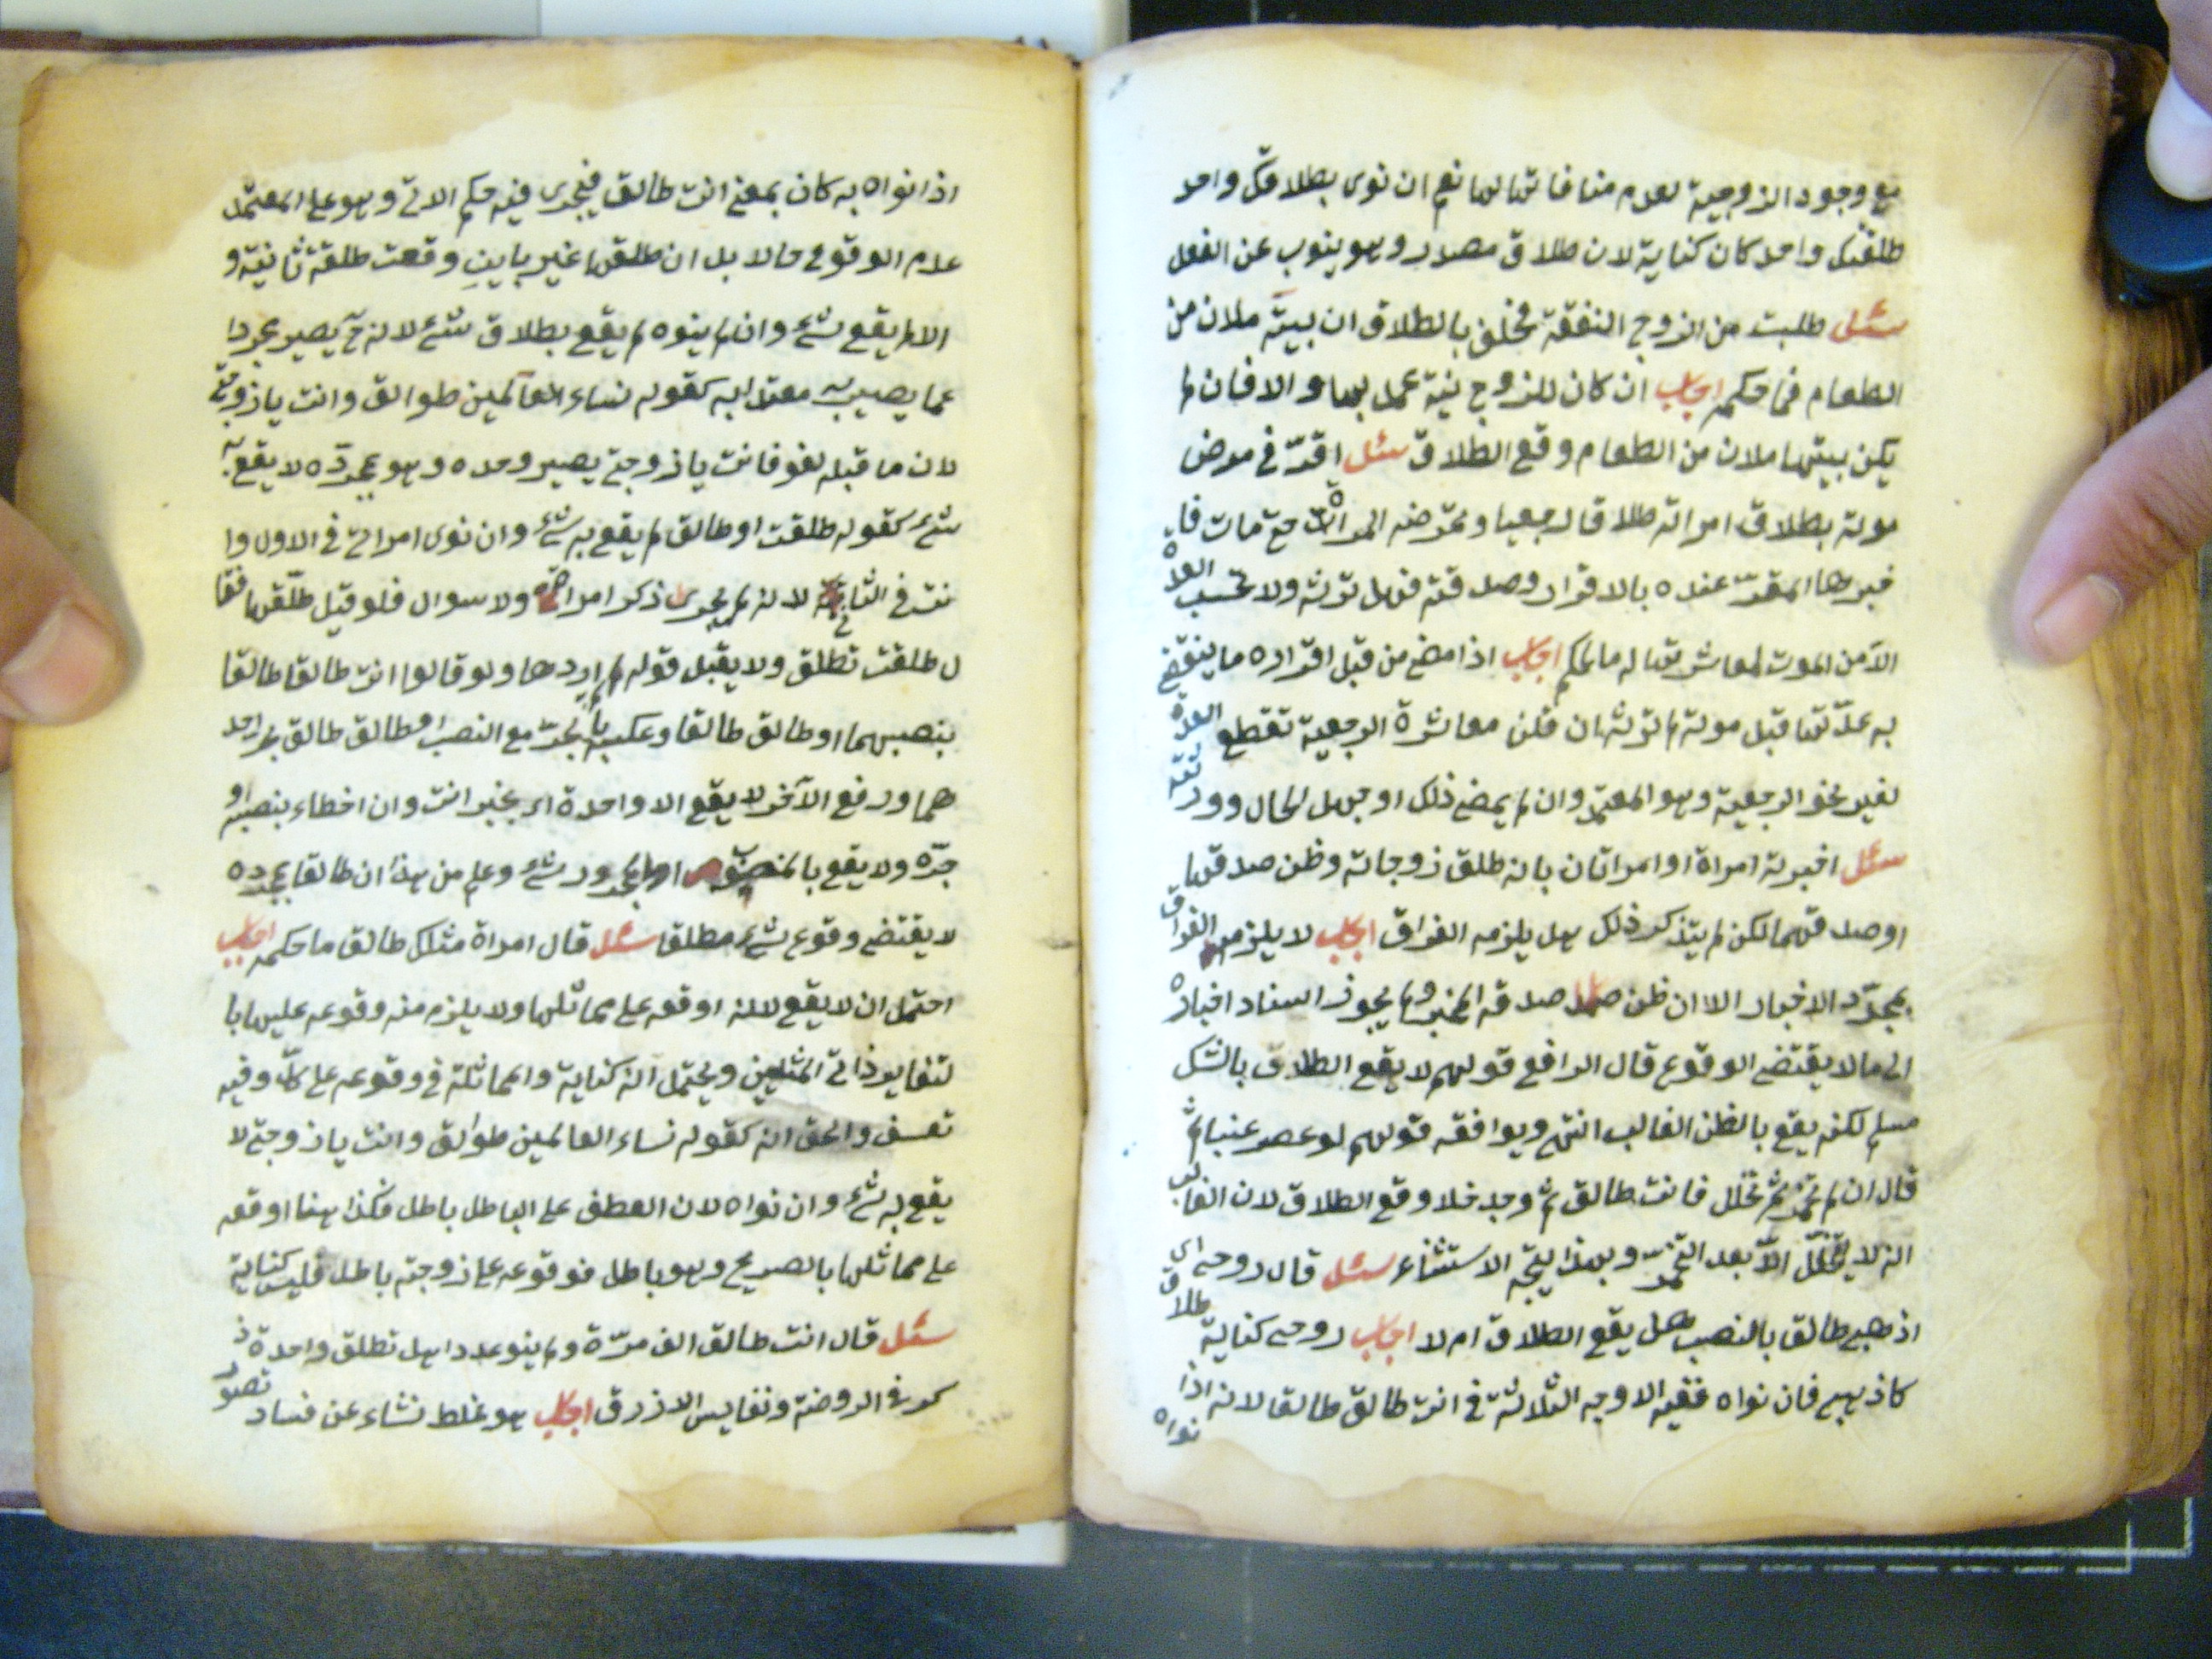 مع وجود الزوجية لعدم منافاتها لها نعم ان نوى بطلاقك واحد
طلقتك واحد كان كناية لان طلاق مصدر وهو ينوب عن الفعل
سئل طلبت من الزوج النفقة فحلف بالطلاق ان بيته ملان من
الطعام فما حكمه اجاب ان كان للزوج نية عمل بها والا فان لم
يكن بيتها ملان من الطعام وقع الطلاق سئل اقر في مرض
موته بطلاق امراته طلاقا رجعيا و تمرضه المراة حتى مات فا
خبرها المقر عنده بالاقرار وصدقته فهل ترثه ولا تحسب العدة
الا من الموت لمعاشرتها له ما الحكم اجاب اذا مضى من قبل اقراره ما ينقضي
به عدتها قبل موته لم ترثه ان قلن معاشرة الرجعية تقطع العدة
لغير نحو الرجعية وهو المعتمد وان لم يمض ذلك او جهل الحال وورثته
سئل اخبرته امراة او امراتان بانه طلق زوجاته وظن صدقها
او صدقهما لكن لم يتذكر ذلك هل يلزمه الفراق اجاب لا يلزمه الفراق
بمجرد الاخبار الا ان ظن صدقه المخبر ولم يجوز اسناد اخباره
الى ما لا يقتضي الوقوع قال الرافع قولهم لا يقع الطلاق بالشك
مسلم لكنه يقع بالظن الغالب انتهى ويوافقه قولهم لو عصر عنبا ثم
قال ان لم تخمر ثم تخلل فانت طالق ثم وجد خلا وقع الطلاق لان الغالب
انه لا يتخلل الا بعد التخمر وبهذا يتجه الاستثناء سئل قال روحي اي
اذهبي طالق بالنصب هل يقع الطلاق ام لا اجاب روحي كناية طلاق
كاذهبي فان نواه ففيه الاوجه الثلاثة في انت طالق طالقا لانه اذا
نواه
اذا نواه به كان بمعنى انت طالق فيجري فيه حكم الاتي وهو على المعتمد
عدم الوقوع حالا بل ان طلقها غير باين وقعت طلقة ثانية و
الا لم يقع شئ وان لم ينوه لم يقع بطلاق شئ لانه ح يصير مجردا
عما يصير به معتدا به كقوله نساء العالمين طوالق وانت يا زوجتي
لان ما قبله لغو فانت يا زوجتي يصير وحده وهو بمجرده لا يقع به
شئ كقوله طلقت او طالق لم يقع به شئ وان نوى امراتي في الاول وا
نت في الثاني لانه لم يجري ذكر امراته ولا سوال فلو قيل طلقها فقا
ل طلقت تطلق ولا يقبل قوله لم اردها ولو قالوا انت طالقا طالقا
بنصبهما او طالق طالقا وعكسه بالجر مع النصب او طالق طالق بجر احد
هما ورفع الآخر لا يقع الا واحدة اي بخبر انت وان اخطاء بنصبه او
جره ولا يقع بالمنصوب او المجرور شئ وعلم من هذا ان طالقا بمجرده
لا يقتضي وقوع شئ مطلقا سئل قال امراة مثلك طالق ما حكمه اجاب
احتمل ان لا يقع لانه اوقعه على مماثلها ولا يلزم منه وقوعه عليها با
لتغاير ذاتي المثلين ويحتمل انه كناية والمماثلة في وقوعه على كل وفيه
تعسف والحق انه كقوله نساء العالمين طوالق وانت يا زوجتي لا
يقع به شئ وان نواه لان العطف على الباطل باطل فكذا هنا اوقعه
على مماثلها بالصريح وهو باطل فوقوعه على زوجته باطل فليس كناية
سئل قال انت طالق الف مرة ولم ينو عددا هل تطلق واحدة ذ
كره في الروضة ونفايس الازرق اجاب هو غلط نشاء عن فساد تصور